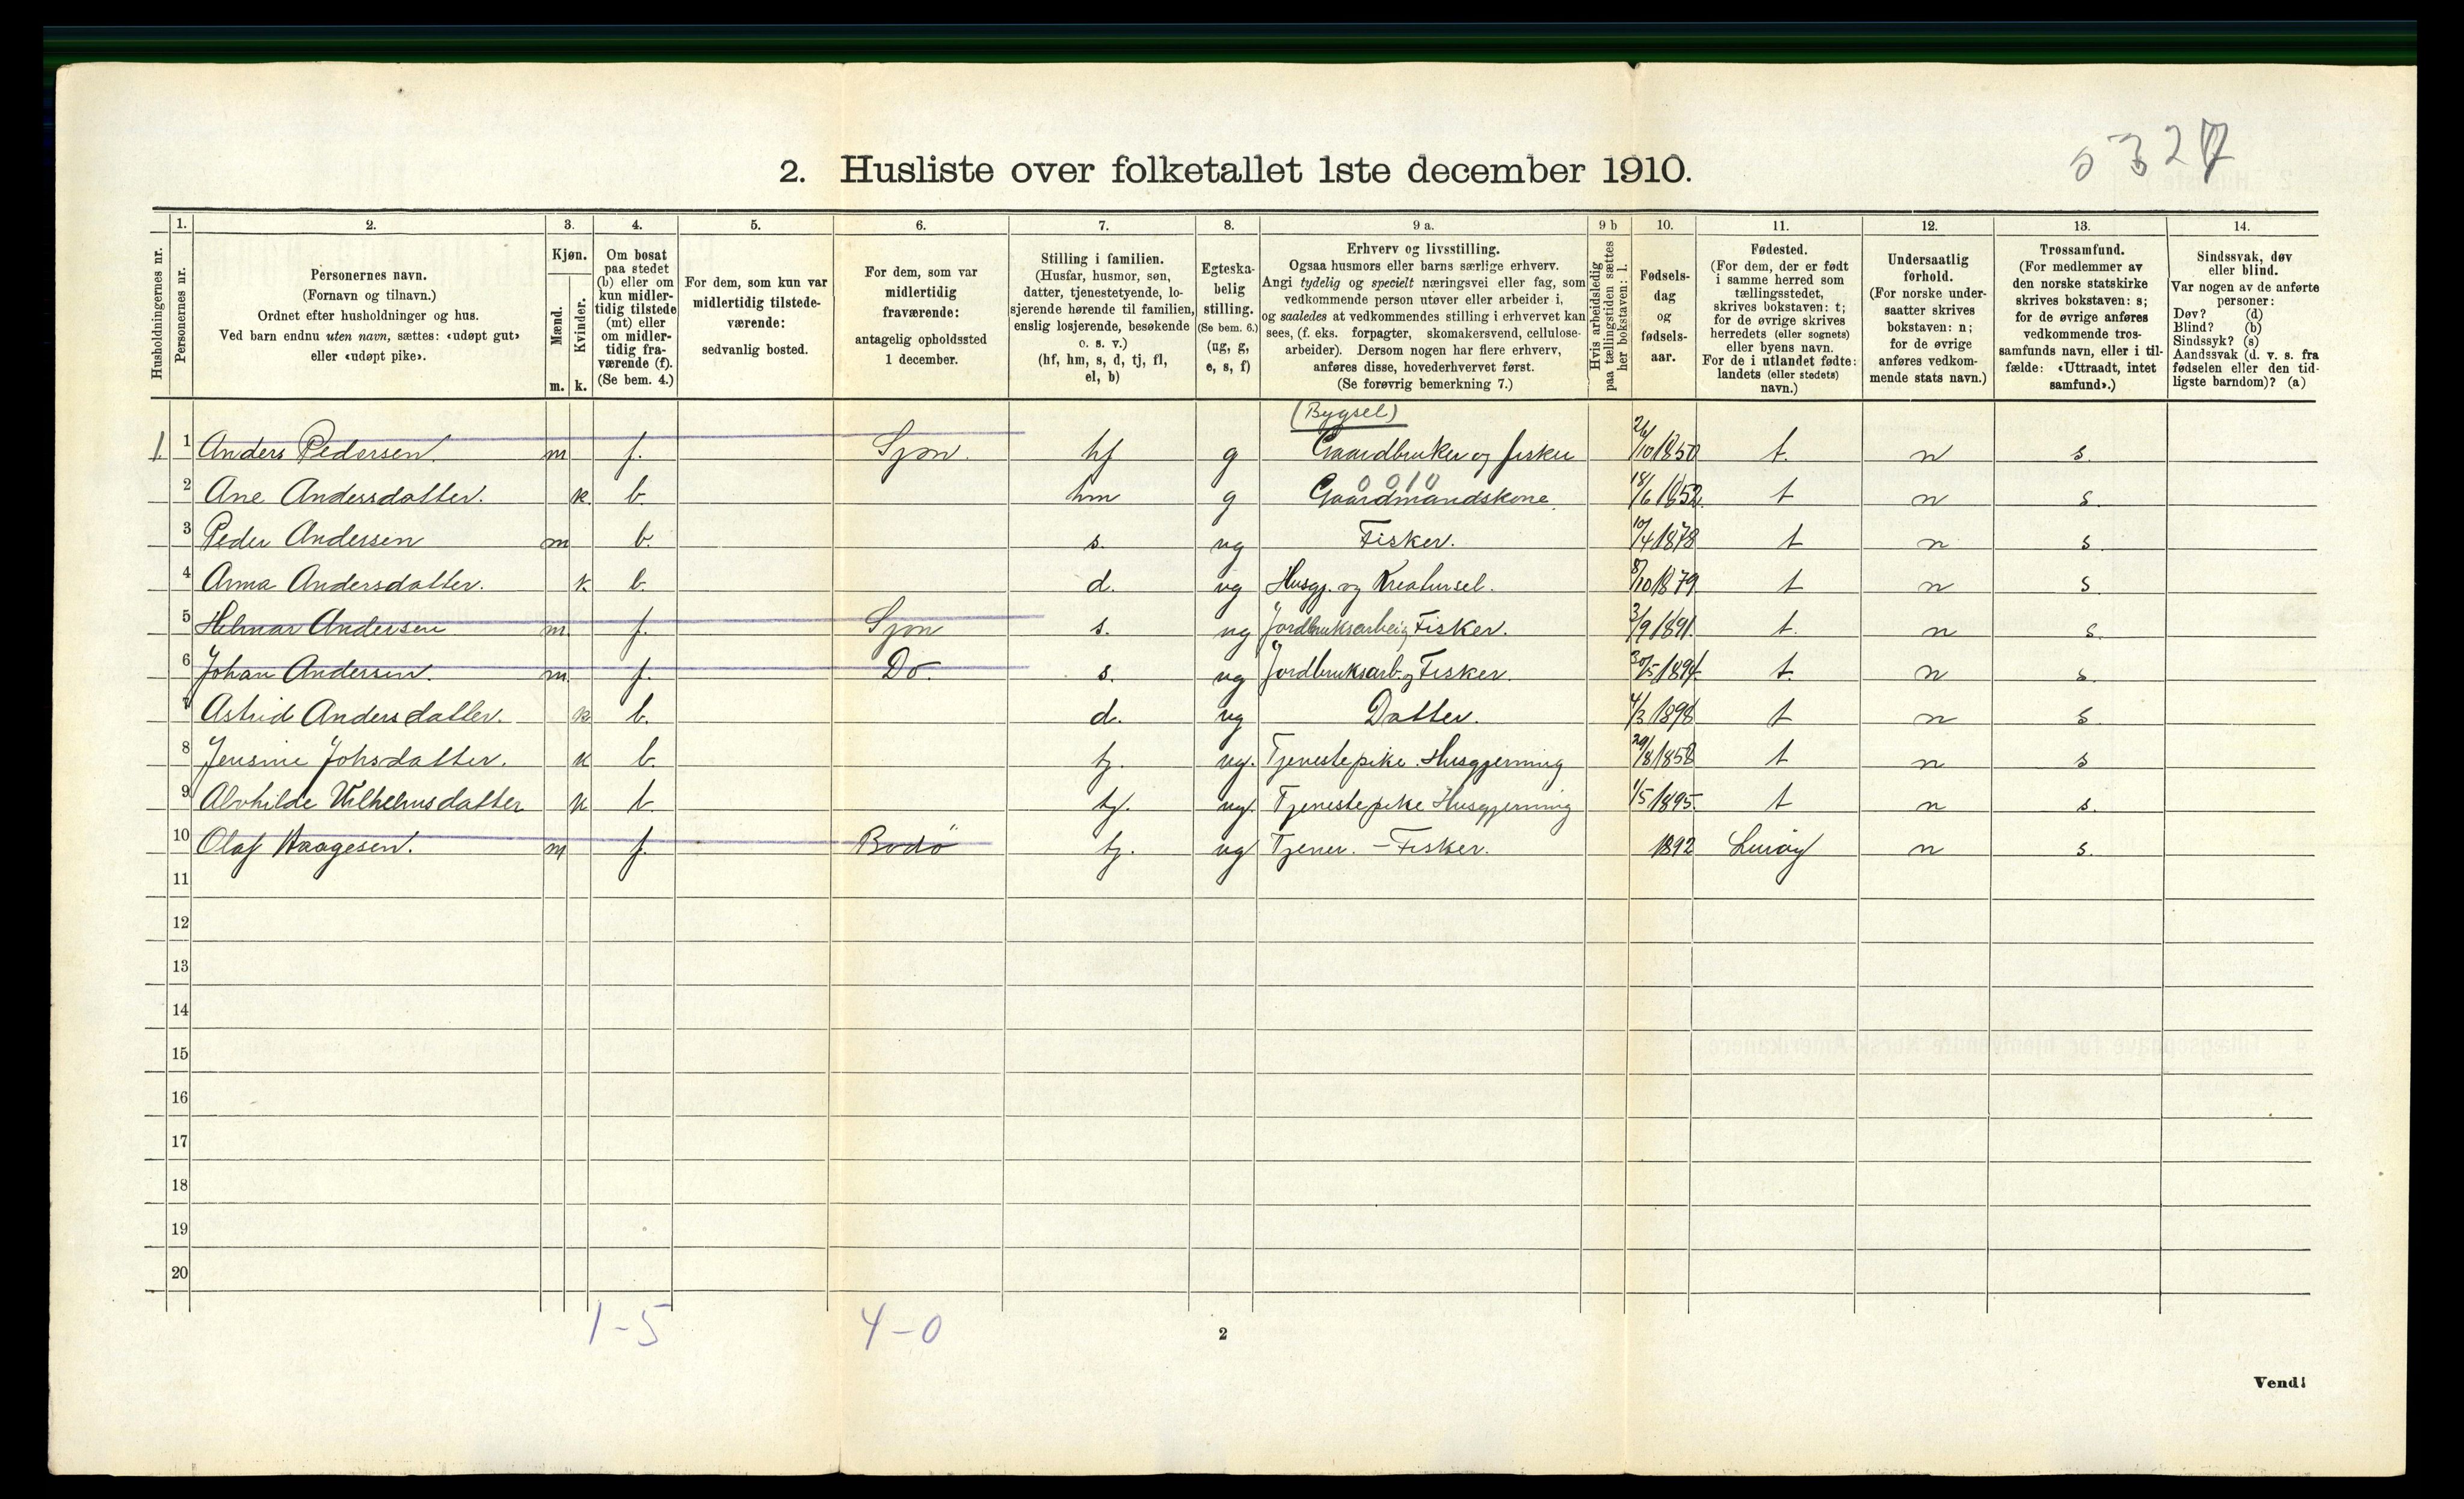 5327
2. Husliste over folketallet 1ste december 1910.
Husholdningernes nr.
1. Personernes nr.
2. Personernes navn.
(Fornavn og tilnavn.)
Ordnet efter husholdninger og hus.
Ved barn endnu uten navn, sættes: «udøpt gut»
eller «udøpt pike».
3. Kjøn.
Mænd. m.
Kvinder. k.
4. Om bosat
paa stedet
(b) eller om
kun midler-
tidig tilstede
(mt) eller
om midler-
tidig fra-
værende (f).
(Se bem. 4.)
5. For dem, som kun var
midlertidig tilstede-
værende:
sedvanlig bosted.
6. For dem, som var
midlertidig
fraværende:
antagelig opholdssted
1 december.
7. Stilling i familien.
(Husfar, husmor, søn,
datter, tjenestetyende, lo-
sjerende hørende til familien,
enslig losjerende, besøkende
o. s. v.)
(hf, hm, s, d, tj, fl,
el, b)
8. Egteska-
belig
stilling.
(Se bem. 6.)
(ug, g,
e, s, f)
9 a. Erhverv og livsstilling.
Ogsaa husmors eller barns særlige erhverv.
Angi tydelig og specielt næringsvei eller fag, som
vedkommende person utøver eller arbeider i,
og saaledes at vedkommendes stilling i erhvervet kan
sees, (f. eks. forpagter, skomakersvend, cellulose-
arbeider). Dersom nogen har flere erhverv,
anføres disse, hovederhvervet først.
(Se forøvrig bemerkning 7.)
9 b Hvis arbeidsledig
paa tællingstiden sættes
her bokstaven: l.
10. Fødsels-
dag
og
fødsels-
aar.
11. Fødested.
(For dem, der er født
i samme herred som
tællingsstedet,
skrives bokstaven: t;
for de øvrige skrives
herredets (eller sognets)
eller byens navn.
For de i utlandet fødte:
landets (eller stedets)
navn.)
12. Undersaatlig
forhold.
(For norske under-
saatter skrives
bokstaven: n;
for de øvrige
anføres vedkom-
mende stats navn.)
13. Trossamfund.
(For medlemmer av
den norske statskirke
skrives bokstaven: s;
for de øvrige anføres
vedkommende tros-
samfunds navn, eller i til-
fælde: «Uttraadt, intet
samfund».)
14. Sindssvak, døv
eller blind.
Var nogen av de anførte
personer:
Døv? (d)
Blind? (b)
Sindssyk? (s)
Aandssvak (d. v. s. fra
fødselen eller den tid-
ligste barndom)? (a)
(Bygsel)
1. 1 Anders Pedersen. m f. Sjøn. hf g Gaardbruker og fisker 26/10 1850 t. n s.
0 0 1 0
2 Ane Andersdatter. k. b. hm g Gaardmandskone. 18/6 1852. t n s.
3 Peder Andersen m b. s. ug Fisker. 10/4 1878 t n s.
4 Anna Andersdatter. k. b. d. ug Husgj. og Kreaturstel. 8/10 1879. t n s
5 Helmar Andersen m. f. Sjøn s. ug Jordbruksarbei og Fisker. 3/9 1891. t. n s.
6 Johan Andersen. m. f. Do. s. ug Jordbruksarb. og Fisker. 30/5 1894. t. n s.
7 Astrid Andersdatter. k b. d. ug Datter. 4/3 1898 t n s
8 Jensine Johsdatter. k b. tj. ug. Tjenestepike. Husgjerning 29/8 1858 t n s
9 Alvhilde Vilhelmsdatter k b tj. ug. Tjenestepike Husgjerning 1/5 1895. t n s.
10 Olaf Haagesen. m f. Bodø tj. ug Tjener. - Fisker. 1892 Lurøy n s.
11
12
13
14
15
16
17
18
19
20
1-5 4-0
2
Vend!